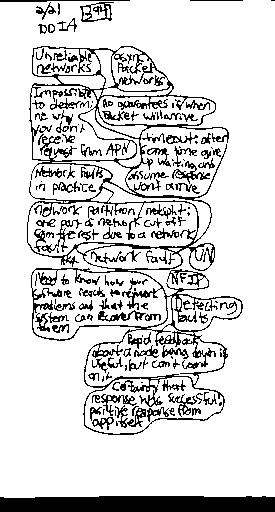 2/21
DDIA
Unreliable networks
async packet networks
Impossible to determine why you don't receive request from API
No guarantees if/when packet will arrive
timeout: after some time give up waiting and assume response won't arrive
Network faults in practice
network partition/netsplit: one part of network cut off from the rest due to a network fault
network fault
Need to know how your software reacts to network problems and that the system can recover from them
Detecting faults
Rapid feedback about a node being down is useful, but can't count on it
Certainty that response was successful: positive response from app itself